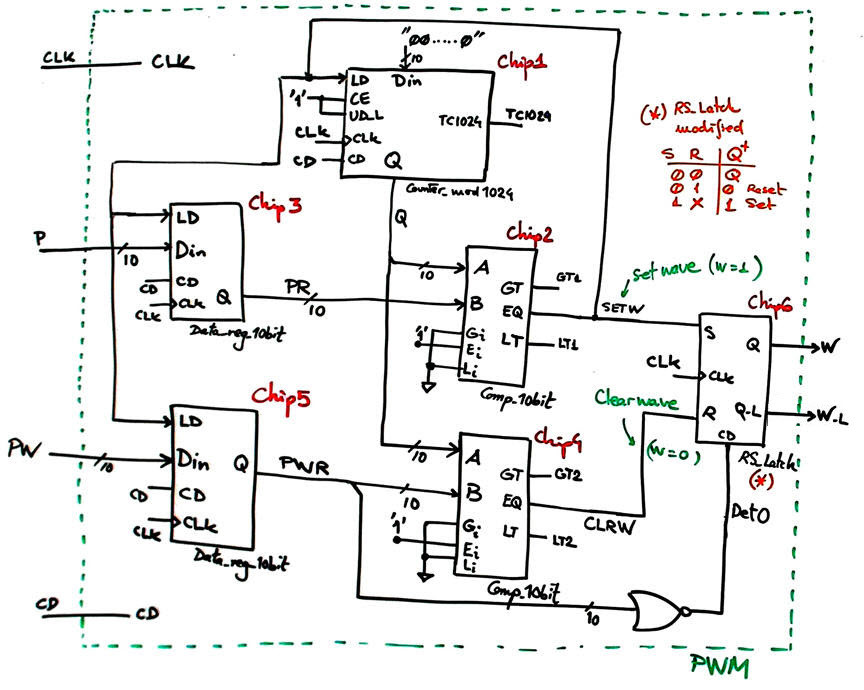 CLK CLK
"00.....0"
10
Chip1
LD Din
'1' CE
UD_L
TC1024 TC1024
CLK CLK
CD CD Q
Counter_mod1024
(*) RS_Latch
modified
S R Q+
0 0 Q
0 1 0 Reset
1 X 1 Set
Chip3
LD
P 10 Din
CD CD
CLK CLK Q
Data_reg_10bit
PR 10
Q
Chip2
10 A
B
GT GT1
EQ
LT LT1
'1' Gi
Ei
Li
Comp_10bit
set wave (W=1)
SETW
Chip6
S Q W
CLK CLK
R Q-L W_L
CD
RS_Latch
(*)
Clear wave
(W=0)
Det0
Chip5
LD
PW 10 Din Q
CD CD
CLK CLK
Data_reg_10bit
PWR
Chip4
10 A
10 B
GT GT2
EQ
CLRW
LT LT2
'1' Gi
Ei
Li
Comp_10bit
10
CD CD
PWM